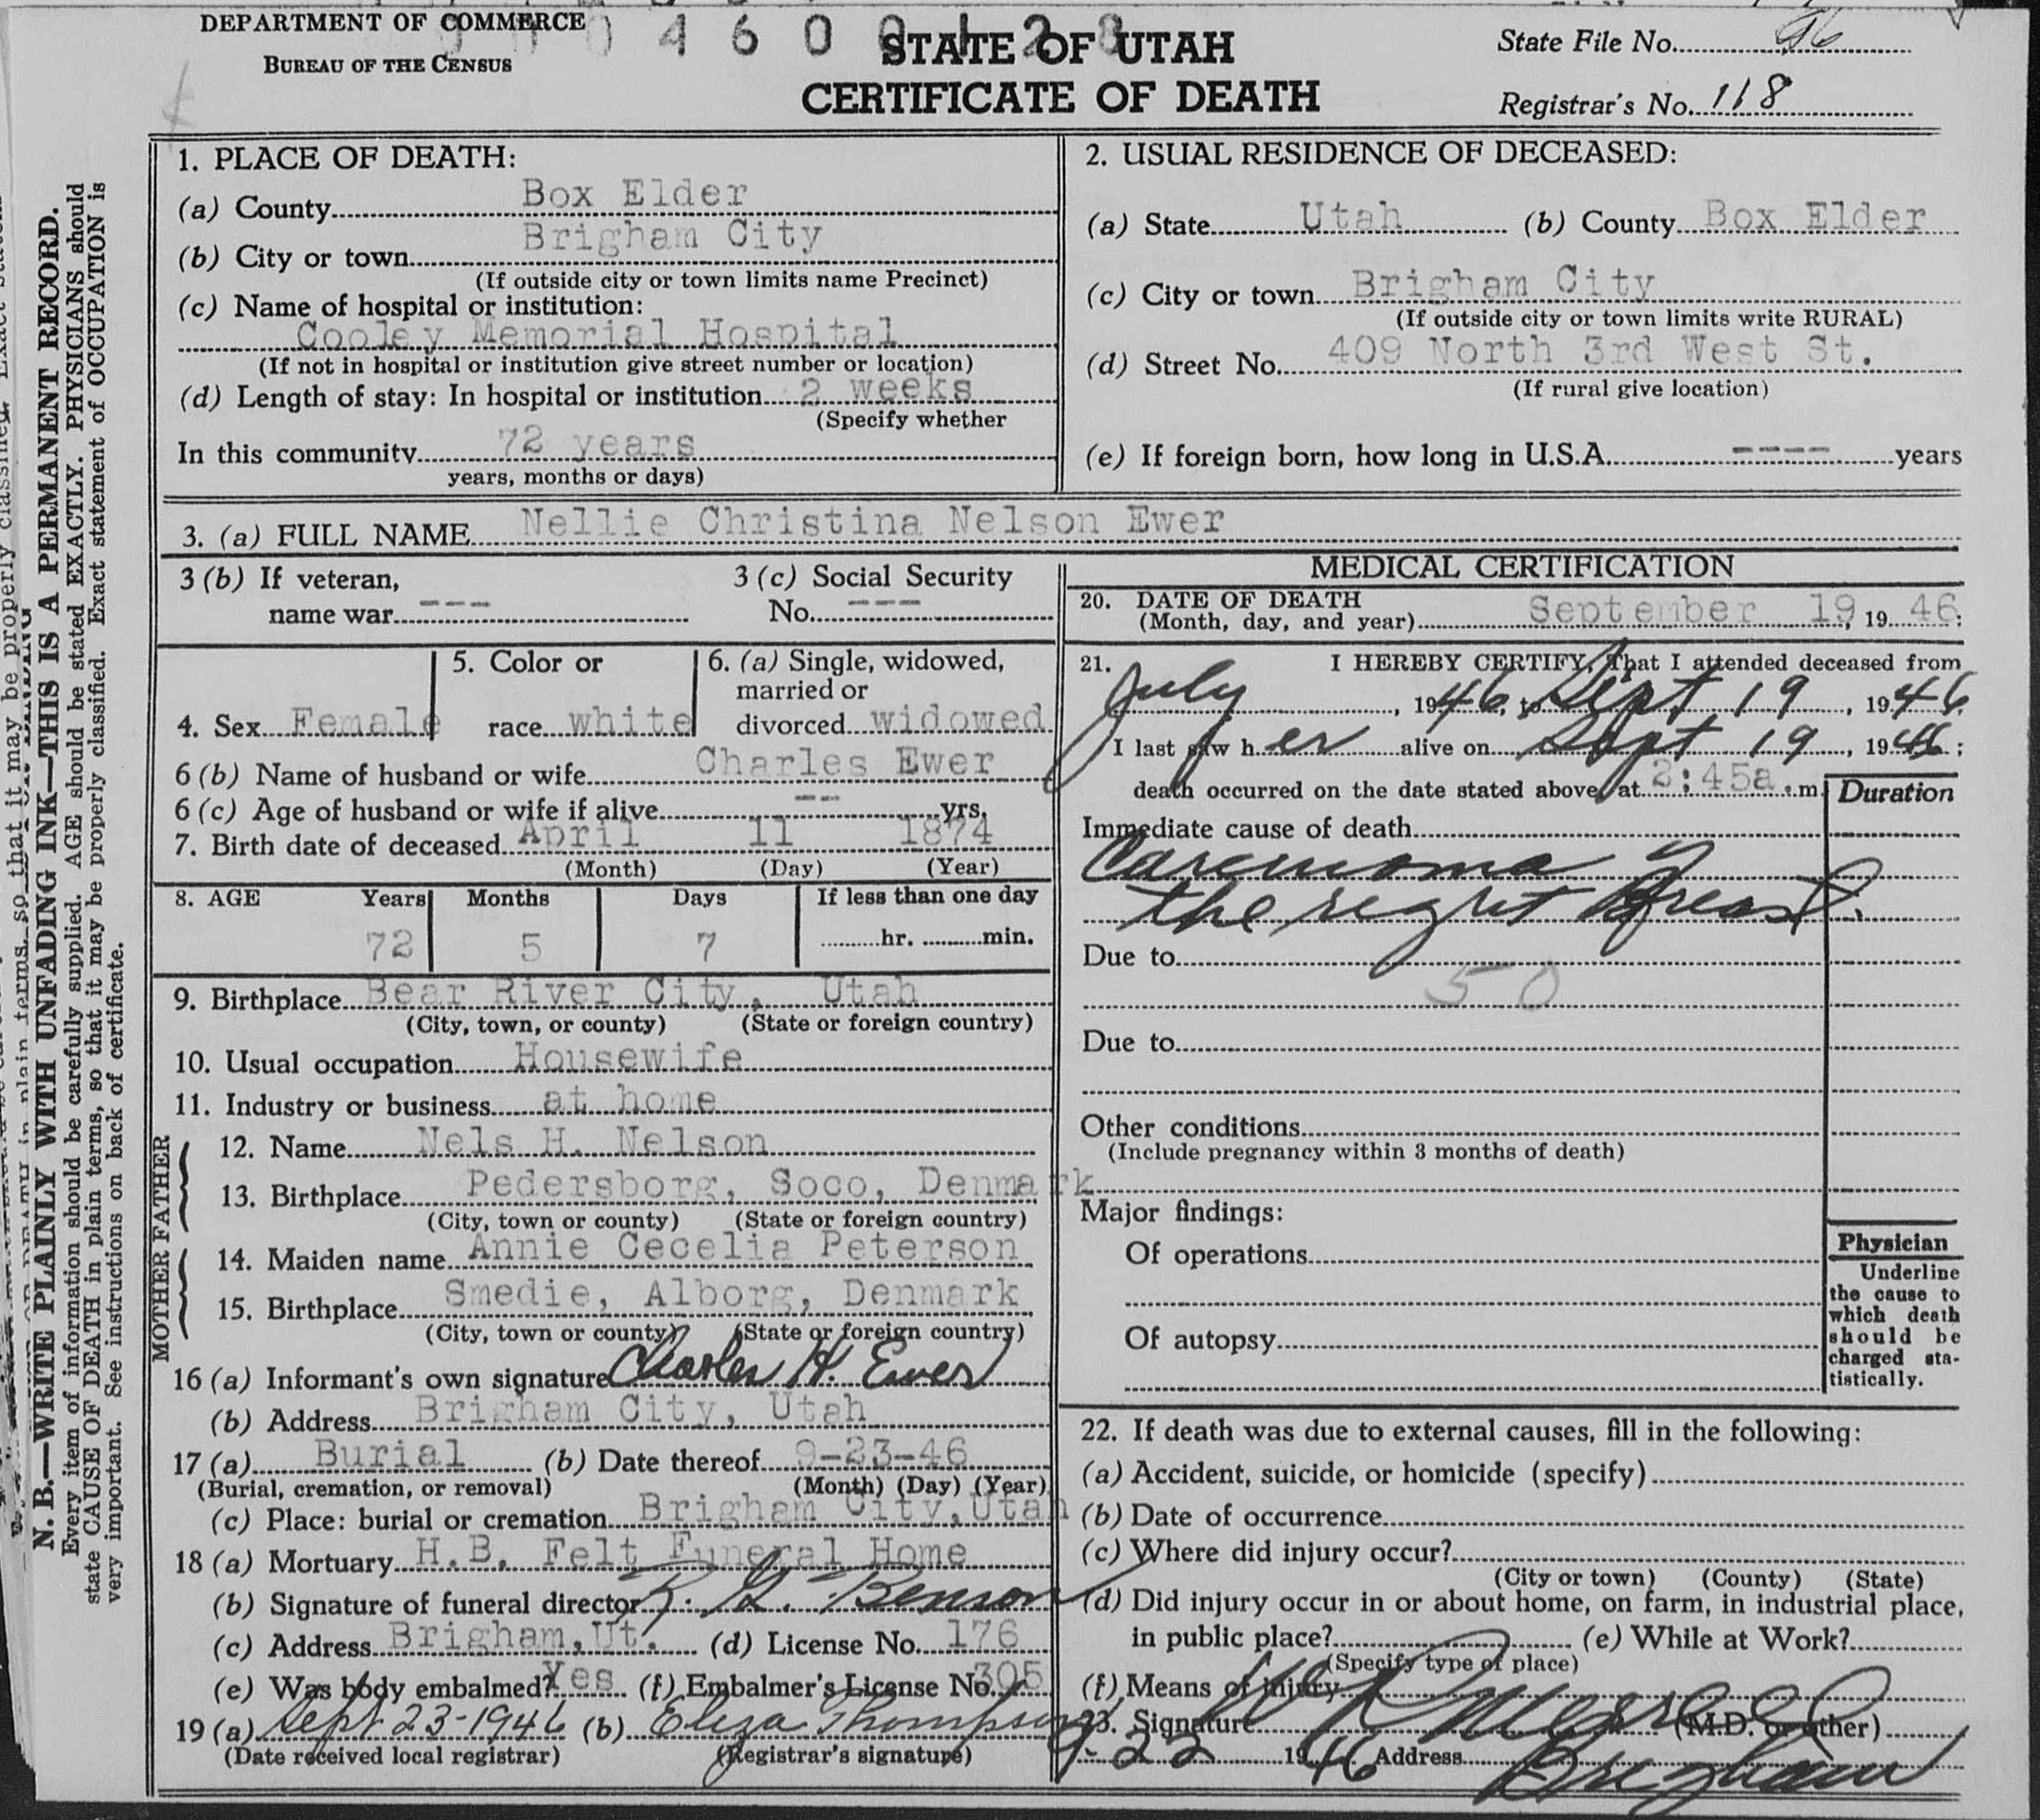 DEPARTMENT OF COMMERCE
BUREAU OF THE CENSUS
4 6 0 0 1 2 8
STATE OF UTAH
CERTIFICATE OF DEATH
State File No. 96
Registrar's No. 118
1. PLACE OF DEATH:
(a) County Box Elder
(b) City or town Brigham City
(If outside city or town limits name Precinct)
(c) Name of hospital or institution:
Cooley Memorial Hospital
(If not in hospital or institution give street number or location)
(d) Length of stay: In hospital or institution 2 weeks
(Specify whether
In this community 72 years
years, months or days)
2. USUAL RESIDENCE OF DECEASED:
(a) State Utah (b) County Box Elder
(c) City or town Brigham City
(If outside city or town limits write RURAL)
(d) Street No. 409 North 3rd West St.
(If rural give location)
(e) If foreign born, how long in U.S.A. ---- years
3. (a) FULL NAME Nellie Christina Nelson Ewer
3 (b) If veteran,
name war ---
3 (c) Social Security
No. ---
4. Sex Female
5. Color or
race white
6. (a) Single, widowed,
married or
divorced widowed
6 (b) Name of husband or wife Charles Ewer
6 (c) Age of husband or wife if alive -- yrs.
7. Birth date of deceased April 11 1874
(Month) (Day) (Year)
8. AGE Years Months Days If less than one day
72 5 7 hr. min.
9. Birthplace Bear River City, Utah
(City, town, or county) (State or foreign country)
10. Usual occupation Housewife
11. Industry or business at home
FATHER
12. Name Nels H. Nelson
13. Birthplace Pedersborg, Soco, Denmark
(City, town or county) (State or foreign country)
MOTHER
14. Maiden name Annie Cecelia Peterson
15. Birthplace Smedie, Alborg, Denmark
(City, town or county) (State or foreign country)
16 (a) Informant's own signature Charles H. Ewer
(b) Address Brigham City, Utah
17 (a) Burial (b) Date thereof 9-23-46
(Burial, cremation, or removal) (Month) (Day) (Year)
(c) Place: burial or cremation Brigham City, Utah
18 (a) Mortuary H.B. Felt Funeral Home
(b) Signature of funeral director Benson
(c) Address Brigham, Ut. (d) License No. 176
(e) Was body embalmed? Yes (f) Embalmer's License No. 305
19 (a) Sept 23-1946 (b) Eliza Thompson
(Date received local registrar) (Registrar's signature)
MEDICAL CERTIFICATION
20. DATE OF DEATH
(Month, day, and year) September 19, 19 46;
21. I HEREBY CERTIFY, That I attended deceased from
July, 1946, to Sept 19, 1946
I last saw her alive on Sept 19, 1946;
death occurred on the date stated above, at 2:45a.m.
Duration
Immediate cause of death
Carcinoma of
the right Breast.
Due to
50
Due to
Other conditions
(Include pregnancy within 3 months of death)
Major findings:
Of operations
Of autopsy
Physician
Underline
the cause to
which death
should be
charged sta-
tistically.
22. If death was due to external causes, fill in the following:
(a) Accident, suicide, or homicide (specify)
(b) Date of occurrence
(c) Where did injury occur?
(City or town) (County) (State)
(d) Did injury occur in or about home, on farm, in industrial place,
in public place? (e) While at Work?
(Specify type of place)
(f) Means of injury
23. Signature (M.D. or other)
9-22 1946 Address Brigham
N. B.—WRITE PLAINLY WITH UNFADING INK—THIS IS A PERMANENT RECORD.
Every item of information should be carefully supplied. AGE should be stated EXACTLY. PHYSICIANS should
state CAUSE OF DEATH in plain terms, so that it may be properly classified. Exact statement of OCCUPATION is
very important. See instructions on back of certificate.